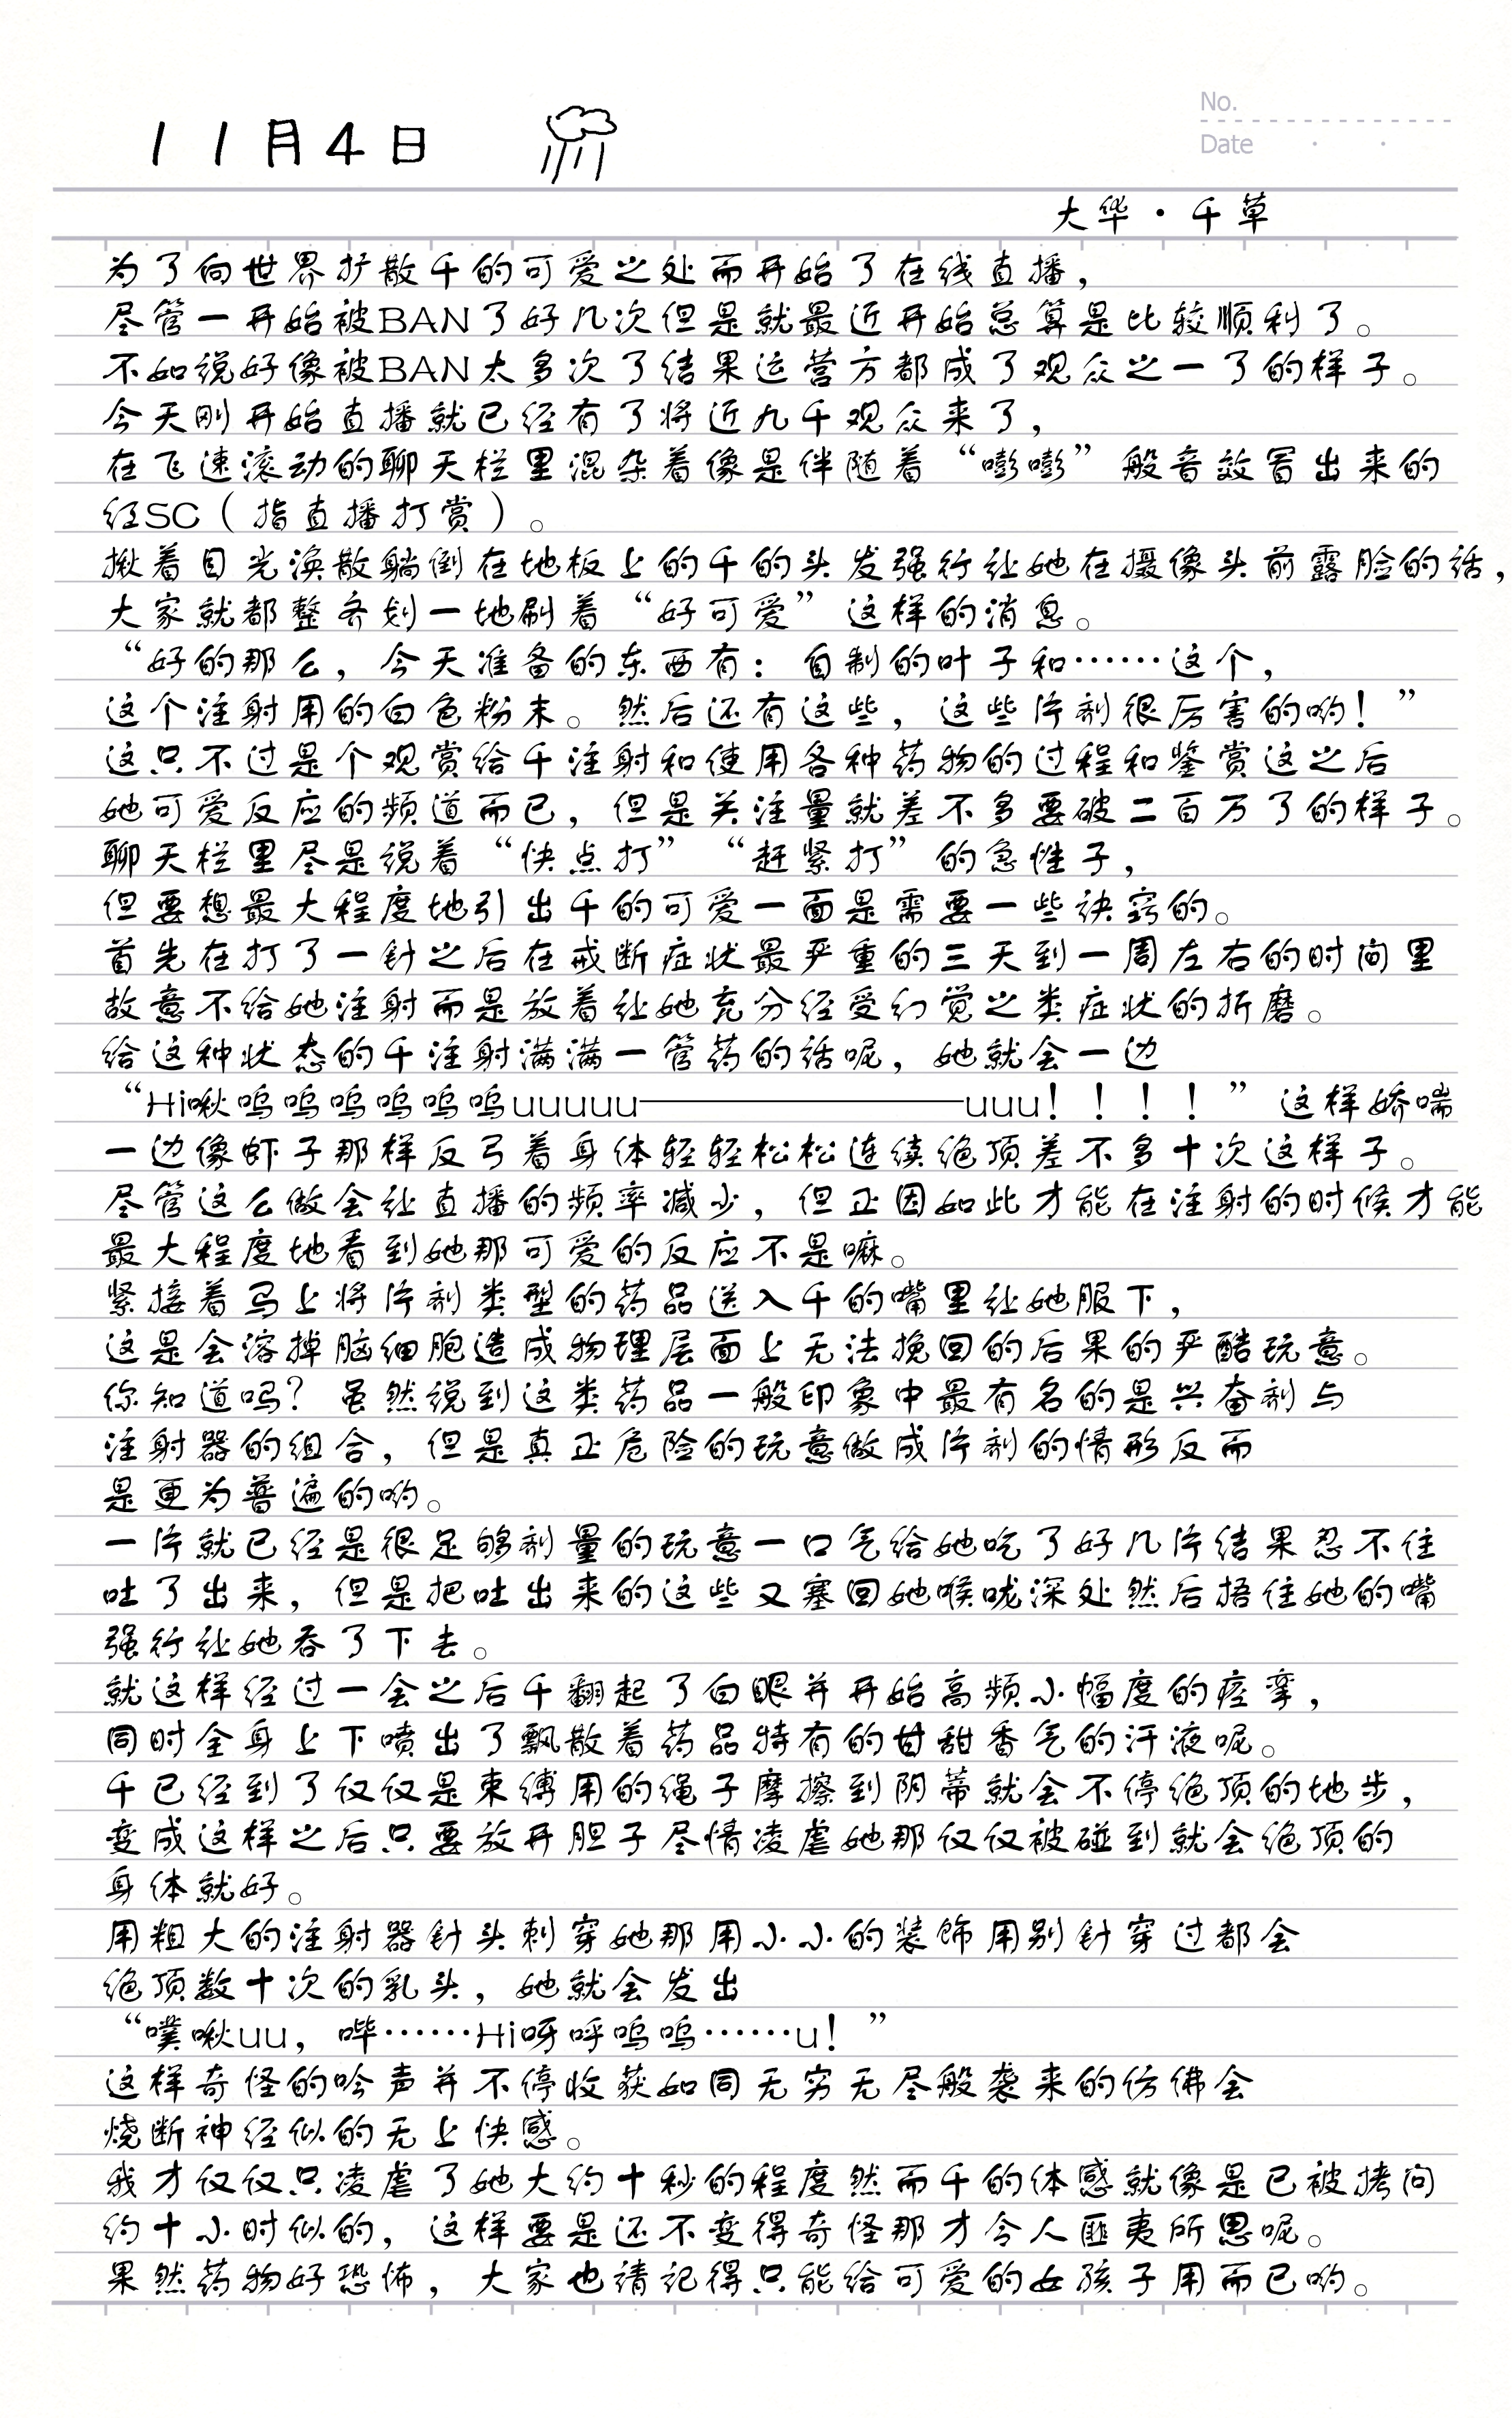 No.
Date
11月4日
大华·千草
为了向世界扩散千的可爱之处而开始了在线直播，
尽管一开始被BAN了好几次但是就最近开始总算是比较顺利了。
不如说好像被BAN太多次了结果运营方都成了观众之一了的样子。
今天刚开始直播就已经有了将近九千观众来了，
在飞速滚动的聊天栏里混杂着像是伴随着“嘭嘭”般音效冒出来的
红SC（指直播打赏）。
揪着目光涣散躺倒在地板上的千的头发强行让她在摄像头前露脸的话，
大家就都整齐划一地刷着“好可爱”这样的消息。
“好的那么，今天准备的东西有：自制的叶子和……这个，
这个注射用的白色粉末。然后还有这些，这些片剂很厉害的哟！”
这只不过是个观赏给千注射和使用各种药物的过程和鉴赏这之后
她可爱反应的频道而已，但是关注量就差不多要破二百万了的样子。
聊天栏里尽是说着“快点打”“赶紧打”的急性子，
但要想最大程度地引出千的可爱一面是需要一些诀窍的。
首先在打了一针之后在戒断症状最严重的三天到一周左右的时间里
故意不给她注射而是放着让她充分经受幻觉之类症状的折磨。
给这种状态的千注射满满一管药的话呢，她就会一边
“Hi啾呜呜呜呜呜呜uuuuu———————uuu！！！！”这样娇喘
一边像虾子那样反弓着身体轻轻松松连续绝顶差不多十次这样子。
尽管这么做会让直播的频率减少，但正因如此才能在注射的时候才能
最大程度地看到她那可爱的反应不是嘛。
紧接着马上将片剂类型的药品送入千的嘴里让她服下，
这是会溶掉脑细胞造成物理层面上无法挽回的后果的严酷玩意。
你知道吗？虽然说到这类药品一般印象中最有名的是兴奋剂与
注射器的组合，但是真正危险的玩意做成片剂的情形反而
是更为普遍的哟。
一片就已经是很足够剂量的玩意一口气给她吃了好几片结果忍不住
吐了出来，但是把吐出来的这些又塞回她喉咙深处然后捂住她的嘴
强行让她吞了下去。
就这样经过一会之后千翻起了白眼并开始高频小幅度的痉挛，
同时全身上下喷出了飘散着药品特有的甘甜香气的汗液呢。
千已经到了仅仅是束缚用的绳子摩擦到阴蒂就会不停绝顶的地步，
变成这样之后只要放开胆子尽情凌虐她那仅仅被碰到就会绝顶的
身体就好。
用粗大的注射器针头刺穿她那用小小的装饰用别针穿过都会
绝顶数十次的乳头，她就会发出
“噗啾uu，哔……Hi呀呼呜呜……u！”
这样奇怪的吟声并不停收获如同无穷无尽般袭来的仿佛会
烧断神经似的无上快感。
我才仅仅只凌虐了她大约十秒的程度然而千的体感就像是已被拷问
约十小时似的，这样要是还不变得奇怪那才令人匪夷所思呢。
果然药物好恐怖，大家也请记得只能给可爱的女孩子用而已哟。